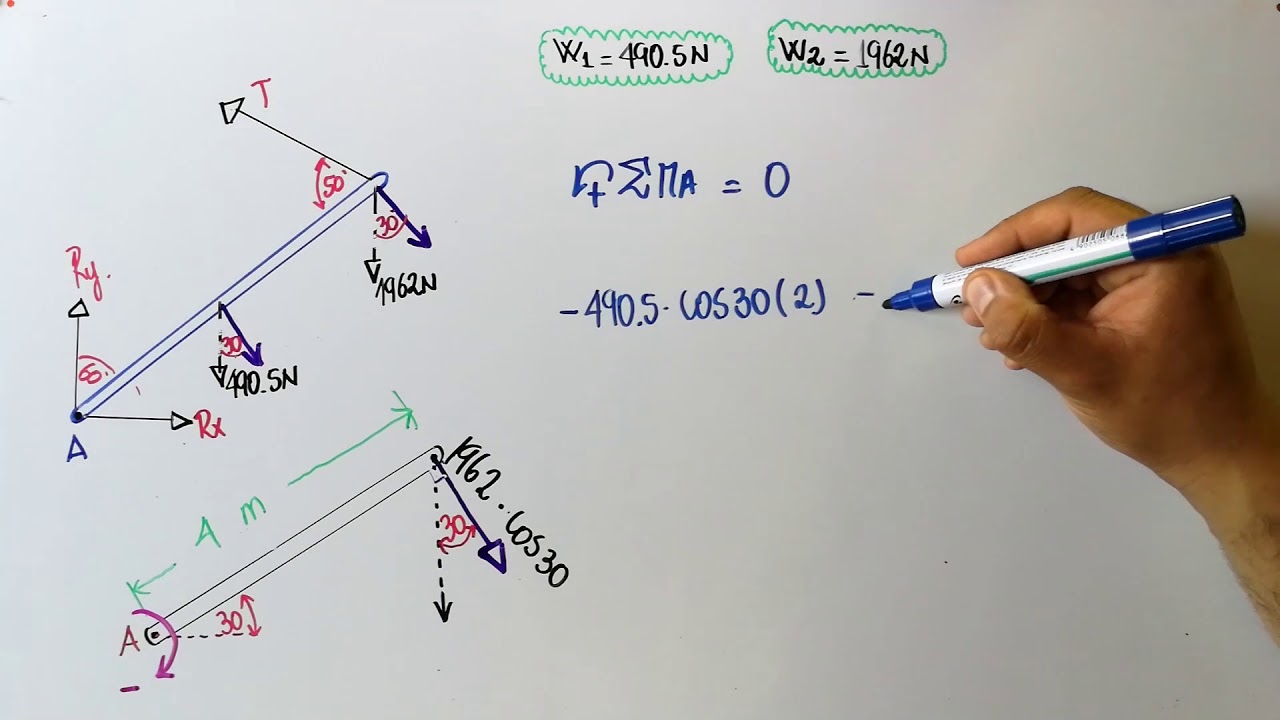 W1 = 490.5N
W2 = 1962N
T
50°
30
1962N
Ry.
30
490.5N
A
Rx
+ ΣMA = 0
-490.5·cos30(2) -
4 m
1962·cos30
30
30
A
-